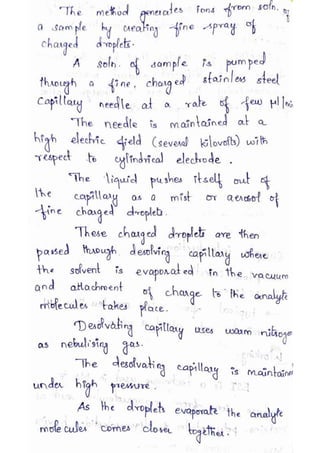 The method generates ions from soln. of
a sample by creating fine spray of
charged droplets.
A soln. of sample is pumped
through a fine, charged stainless steel
Capillary needle at a rate of few μl/
The needle is maintained at a
high electric field (several kilovolts) with
respect to cylindrical electrode.
The liquid pushes itself out of
the capillary as a mist or aerosol of
fine charged droplets.
These charged droplets are then
passed through desolving capillary where
the solvent is evaporated in the vacuum
and attachment of charge to the analyte
molecules takes place.
Desolvating capillary uses warm nitroge
as nebulising gas.
The desolvating capillary is maintaine
under high pressure.
As the droplets evaporate the analyte
molecules comes closer together.